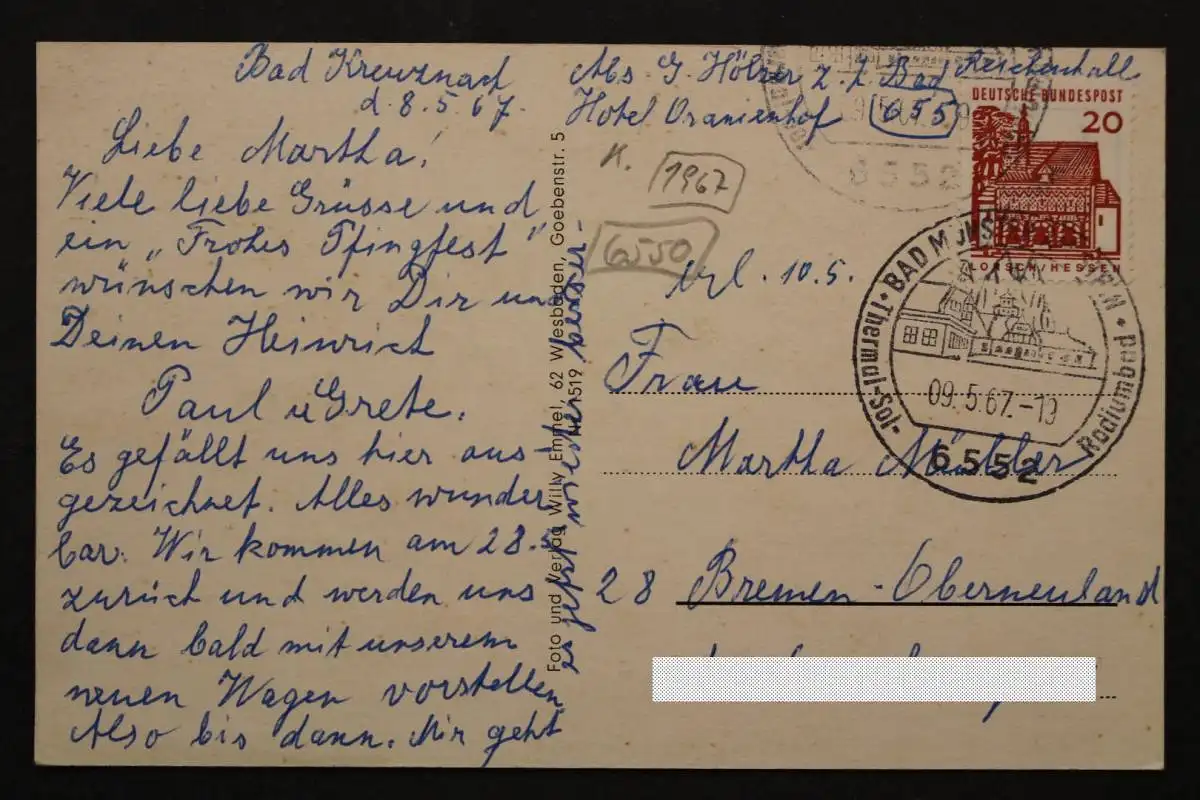 Bad Kreuznach
d. 8.5.67.
Liebe Martha!
Viele liebe Grüsse und
ein „Frohes Pfingfest"
wünschen wir Dir und
Deinen Heinrich
Paul u Grete.
Es gefällt uns hier aus-
gezeichnet. Alles wunder
bar. Wir kommen am 28.5
zurück und werden uns
dann bald mit unserem
neuen Wagen vorstellen.
Also bis dann. Mir geht
es jetzt wieder besser.
Foto und Verlag Willy Emmel, 62 Wiesbaden, Goebenstr. 5
1519
Abs G. Hölzer z. Z. Bad Reichenhall
Hotel Oranienhof 655
K.
1967
6550
erl. 10.5.
Frau
Martha Müller
28 Bremen-Oberneuland
DEUTSCHE BUNDESPOST
20
LORSCH/HESSEN
6552
BAD MÜNSTER
Radiumbad
Thermal-Sol-
09.5.67.-19
6552